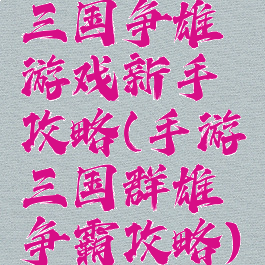 三国争雄
游戏新手
攻略(手游
三国群雄
争霸攻略)